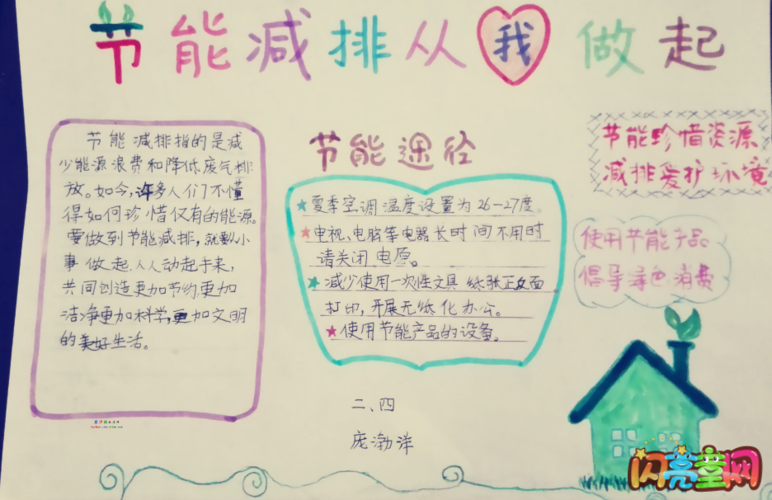 节能减排从我做起
节能减排指的是减
少能源浪费和降低废气排
放。如今,许多人们不懂
得如何珍惜仅有的能源。
要做到节能减排,就要从小
事做起,人人动起手来,
共同创造更加节约更加
洁净更加科学,更加文明
的美好生活。
节能途径
夏季空调温度设置为26-27度。
电视、电脑等电器长时间不用时
请关闭电原。
减少使用一次性文具 纸张正反面
打印,开展无纸化办公。
使用节能产品的设备。
节能珍惜资源
减排爱护环境
使用节能产品
倡导绿色消费
二、四
庞渤洋
闪亮童网